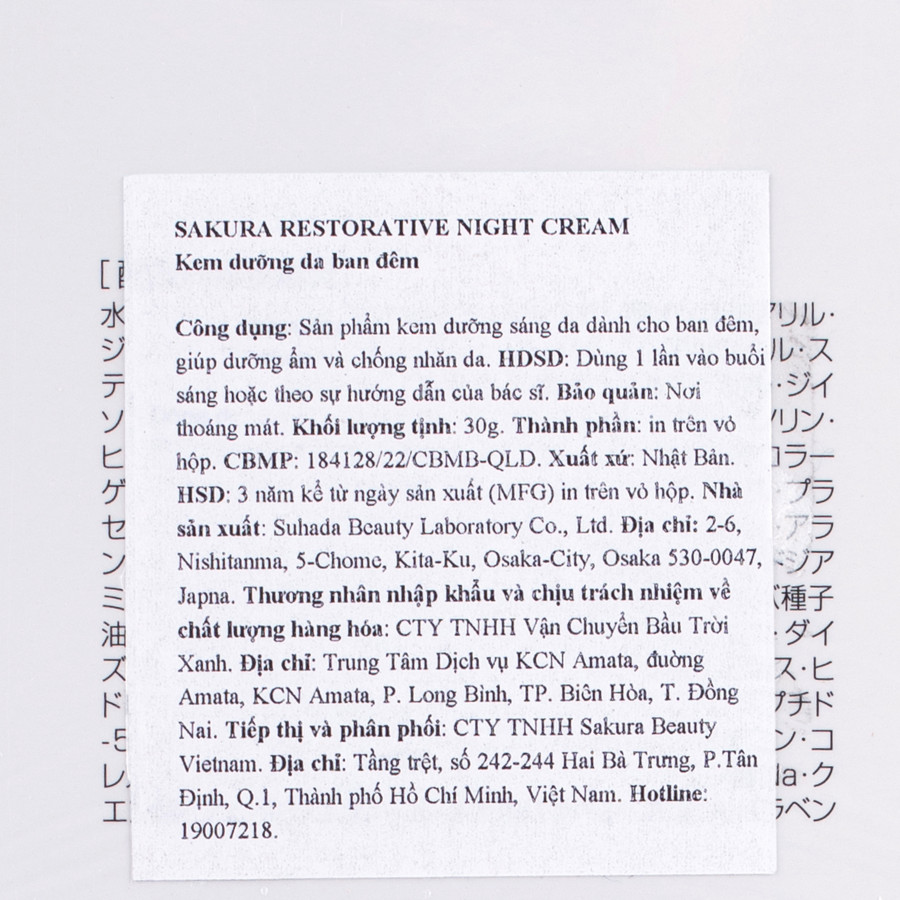 SAKURA RESTORATIVE NIGHT CREAM
Kem dưỡng da ban đêm
Công dụng: Sản phẩm kem dưỡng sáng da dành cho ban đêm,
giúp dưỡng ẩm và chống nhăn da. HDSD: Dùng 1 lần vào buổi
sáng hoặc theo sự hướng dẫn của bác sĩ. Bảo quản: Nơi
thoáng mát. Khối lượng tịnh: 30g. Thành phần: in trên vỏ
hộp. CBMP: 184128/22/CBMB-QLD. Xuất xứ: Nhật Bản.
HSD: 3 năm kể từ ngày sản xuất (MFG) in trên vỏ hộp. Nhà
sản xuất: Suhada Beauty Laboratory Co., Ltd. Địa chỉ: 2-6,
Nishitanma, 5-Chome, Kita-Ku, Osaka-City, Osaka 530-0047,
Japna. Thương nhân nhập khẩu và chịu trách nhiệm về
chất lượng hàng hóa: CTY TNHH Vận Chuyển Bầu Trời
Xanh. Địa chỉ: Trung Tâm Dịch vụ KCN Amata, đường
Amata, KCN Amata, P. Long Bình, TP. Biên Hòa, T. Đồng
Nai. Tiếp thị và phân phối: CTY TNHH Sakura Beauty
Vietnam. Địa chỉ: Tầng trệt, số 242-244 Hai Bà Trưng, P.Tân
Định, Q.1, Thành phố Hồ Chí Minh, Việt Nam. Hotline:
19007218.